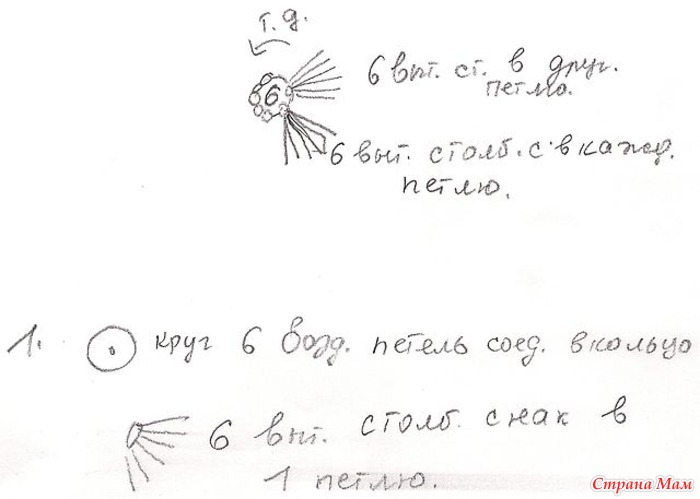 т. д.
6
6 выт. ст. в друг.
петлю.
6 выт. столб. с. в кажд.
петлю.
1. круг 6 возд. петель соед. в кольцо
6 выт. столб. с нак в
1 петлю.
Страна Мам